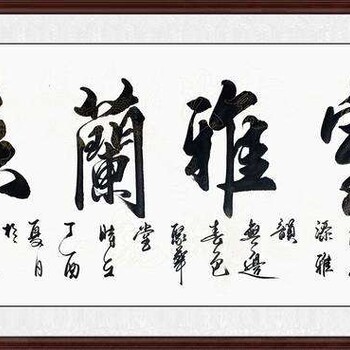 室雅蘭
添雅
韻
無邊
春色
聚華
堂
時在
丁酉
夏月
於